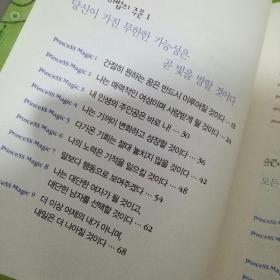 마법의 주문 1
당신이 가진 무한한 가능성은
곧 빛을 발할 것이다
Princess Magic 1 간절히 원하는 꿈은 반드시 이루어질 것이다 … 18
Princess Magic 2 나는 매력적인 여성이며 사랑받게 될 것이다 … 24
Princess Magic 3 내 인생의 주인공은 바로 나! … 30
Princess Magic 4 나는 기꺼이 변화하고 성장할 것이다 … 36
Princess Magic 5 다가온 기회는 절대 놓치지 않을 것이다 … 42
Princess Magic 6 나의 노력은 기적을 일으킬 것이다 … 48
Princess Magic 7 말보다 행동으로 보여주겠다 … 54
Princess Magic 8 나는 대단한 여자가 될 것이고,
대단한 남자를 선택할 것이다 … 62
Princess Magic 9 더 이상 어제의 내가 아니며,
내일은 더 나아질 것이다 … 68
모든
Princess
Princess
Princess
Princess